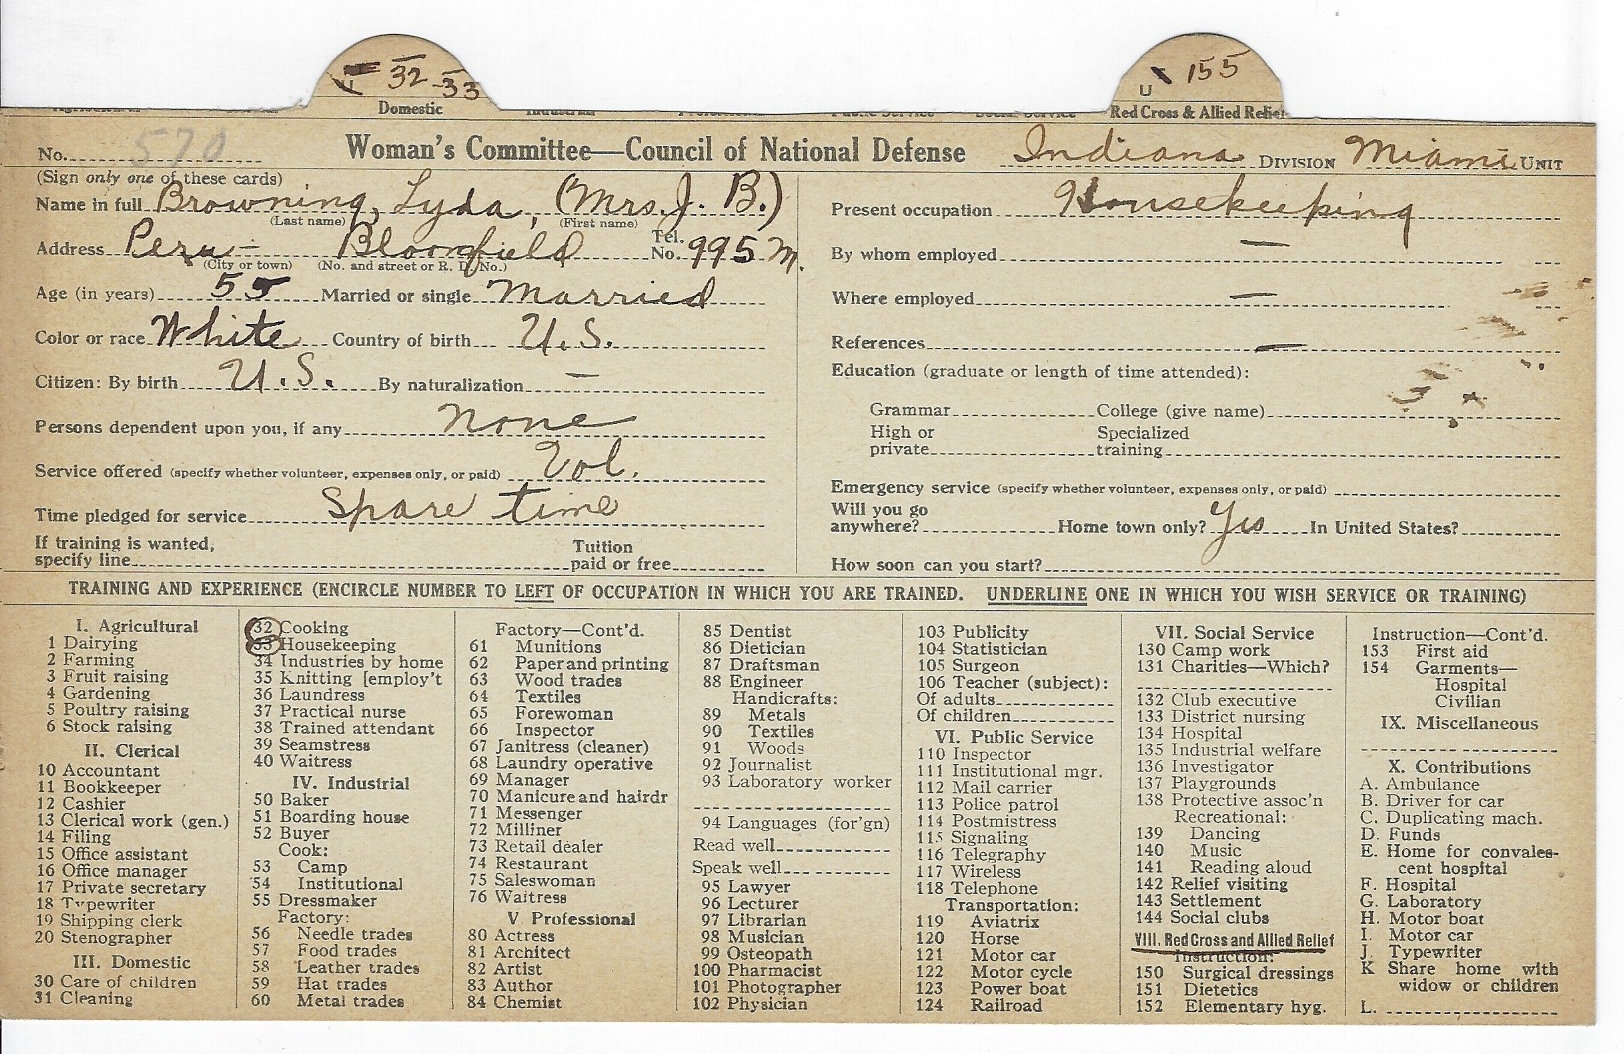 32-33
U 155
Domestic
Red Cross & Allied Relief
No. 570
Woman's Committee—Council of National Defense Indiana DIVISION Miami UNIT
(Sign only one of these cards)
Name in full Browning, Lyda, (Mrs. J. B.)
(Last name) (First name)
Address Peru — Bloomfield Tel. No. 995 M.
(City or town) (No. and street or R. D. No.)
Age (in years) 55 Married or single Married
Color or race White Country of birth U.S.
Citizen: By birth U.S. By naturalization —
Persons dependent upon you, if any none
Service offered (specify whether volunteer, expenses only, or paid) Vol.
Time pledged for service Spare time
If training is wanted,
specify line Tuition paid or free
Present occupation Housekeeping
By whom employed —
Where employed —
References —
Education (graduate or length of time attended):
Grammar College (give name)
High or private Specialized training
Emergency service (specify whether volunteer, expenses only, or paid)
Will you go anywhere? Home town only? Yes In United States?
How soon can you start?
TRAINING AND EXPERIENCE (ENCIRCLE NUMBER TO LEFT OF OCCUPATION IN WHICH YOU ARE TRAINED. UNDERLINE ONE IN WHICH YOU WISH SERVICE OR TRAINING)
I. Agricultural
1 Dairying
2 Farming
3 Fruit raising
4 Gardening
5 Poultry raising
6 Stock raising
II. Clerical
10 Accountant
11 Bookkeeper
12 Cashier
13 Clerical work (gen.)
14 Filing
15 Office assistant
16 Office manager
17 Private secretary
18 Typewriter
19 Shipping clerk
20 Stenographer
III. Domestic
30 Care of children
31 Cleaning
32 Cooking
33 Housekeeping
34 Industries by home
35 Knitting [employ't
36 Laundress
37 Practical nurse
38 Trained attendant
39 Seamstress
40 Waitress
IV. Industrial
50 Baker
51 Boarding house
52 Buyer
Cook:
53 Camp
54 Institutional
55 Dressmaker
Factory:
56 Needle trades
57 Food trades
58 Leather trades
59 Hat trades
60 Metal trades
Factory—Cont'd.
61 Munitions
62 Paper and printing
63 Wood trades
64 Textiles
65 Forewoman
66 Inspector
67 Janitress (cleaner)
68 Laundry operative
69 Manager
70 Manicure and hairdr
71 Messenger
72 Milliner
73 Retail dealer
74 Restaurant
75 Saleswoman
76 Waitress
V. Professional
80 Actress
81 Architect
82 Artist
83 Author
84 Chemist
85 Dentist
86 Dietician
87 Draftsman
88 Engineer
Handicrafts:
89 Metals
90 Textiles
91 Woods
92 Journalist
93 Laboratory worker
94 Languages (for'gn)
Read well
Speak well
95 Lawyer
96 Lecturer
97 Librarian
98 Musician
99 Osteopath
100 Pharmacist
101 Photographer
102 Physician
103 Publicity
104 Statistician
105 Surgeon
106 Teacher (subject):
Of adults
Of children
VI. Public Service
110 Inspector
111 Institutional mgr.
112 Mail carrier
113 Police patrol
114 Postmistress
115 Signaling
116 Telegraphy
117 Wireless
118 Telephone
Transportation:
119 Aviatrix
120 Horse
121 Motor car
122 Motor cycle
123 Power boat
124 Railroad
VII. Social Service
130 Camp work
131 Charities—Which?
132 Club executive
133 District nursing
134 Hospital
135 Industrial welfare
136 Investigator
137 Playgrounds
138 Protective assoc'n
Recreational:
139 Dancing
140 Music
141 Reading aloud
142 Relief visiting
143 Settlement
144 Social clubs
VIII. Red Cross and Allied Relief
Instruction:
150 Surgical dressings
151 Dietetics
152 Elementary hyg.
Instruction—Cont'd.
153 First aid
154 Garments—
Hospital
Civilian
IX. Miscellaneous
X. Contributions
A. Ambulance
B. Driver for car
C. Duplicating mach.
D. Funds
E. Home for convales-
cent hospital
F. Hospital
G. Laboratory
H. Motor boat
I. Motor car
J. Typewriter
K Share home with
widow or children
L.